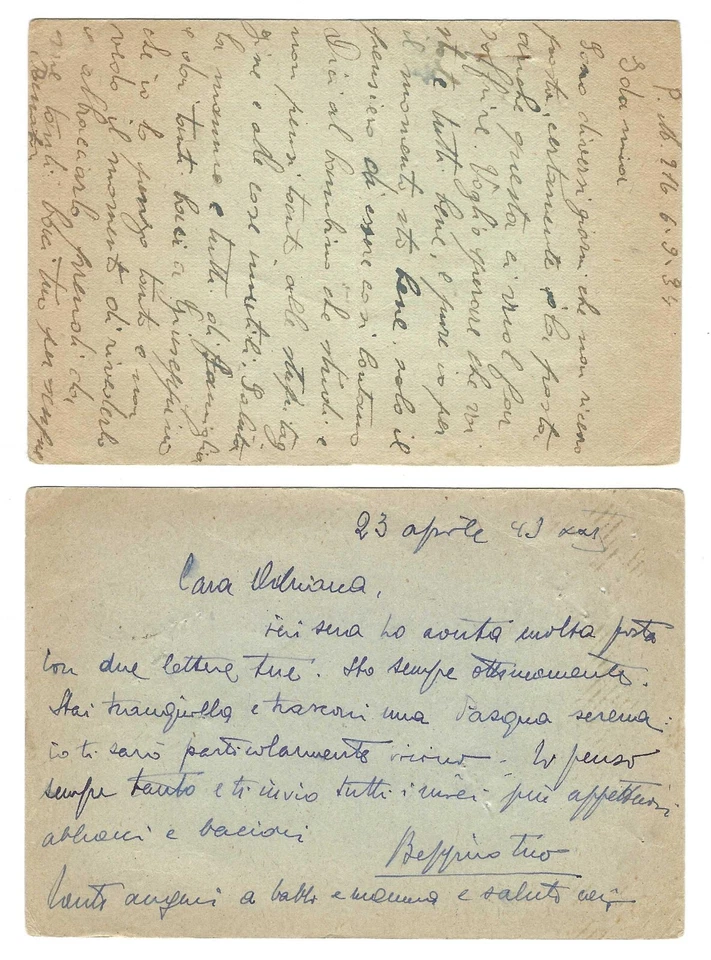 P. M. 216 6.9.34
Ida mia
Sono diversi giorni che non ricevo
posta, certamente la posta
anche questa ci vuol far
soffrire. Voglio sperare che voi
state tutti bene, e pure io per
il momento sto bene, solo il
pensiero di essere così lontano
Dici al bambino che studi e
non pensi tanto alle
e alle cose inutili. Saluta
la mamma e tutti di famiglia
e dai tanti baci a Giuseppino
che io lo penso tanto e non
vedo il momento di rivederlo
e abbracciarlo prendi da
me tanti baci tuo per sempre
23 aprile 43 XXI
Cara Adriana,
ieri sera ho avuta molta posta
con due lettere tue. Sto sempre ottimamente.
Stai tranquilla e trascorri una Pasqua serena:
io ti sarò particolarmente vicino - Ti penso
sempre tanto e ti invio tutti i miei più affettuosi
abbracci e bacioni
Beppino tuo
Tanti auguri a babbo e mamma e saluti cari